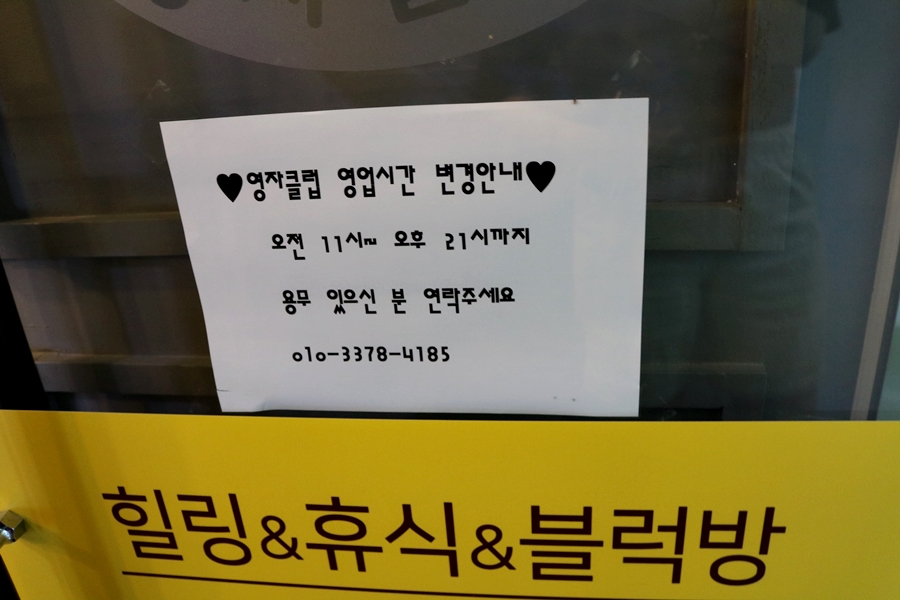 ♥영자클럽 영업시간 변경안내♥
오전 11시~ 오후 21시까지
용무 있으신 분 연락주세요
010-3378-4185
힐링&휴식&블럭방